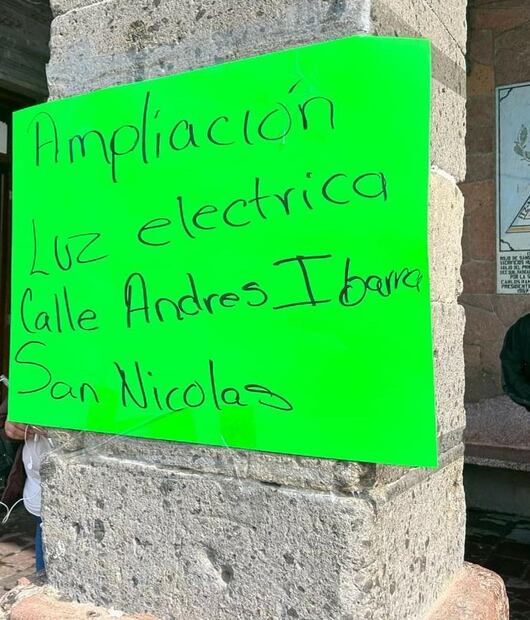 Ampliación
Luz electrica
Calle Andres Ibarra
San Nicolas